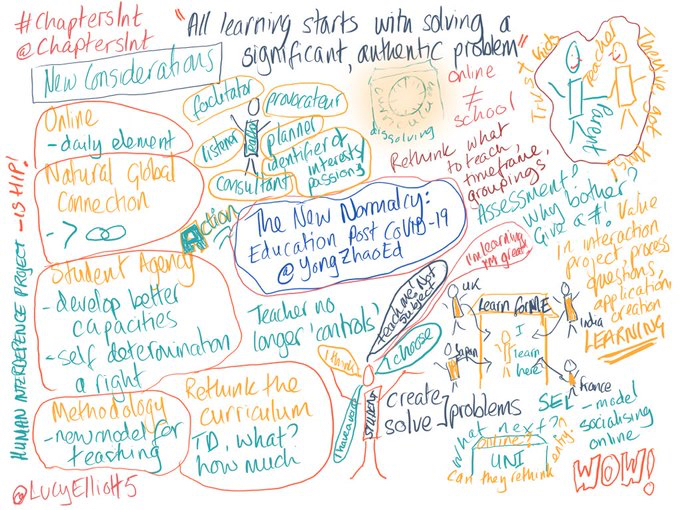 #ChaptersInt
@ChaptersInt
"All learning starts with solving a
significant, authentic problem"
New Considerations
Online
- daily element
Natural Global
Connection
Student Agency
- develop better
capacities
- self determination
a right
Methodology
- new model for
teaching
HUMAN INTERDEPENCE PROJECT - IS HIP!
@LucyElliott5
facilitator
provocateur
listener
planner
identifier of
interests/
passions
consultant
Action
dissolving
online
≠
school
Rethink what
to teach,
timeframe,
groupings
Trust kids
teacher
Parent
The New Normalcy:
Education Post CoVID-19
@YongZhaoEd
Assessment?
Why bother?
Give a #!
Value
in interaction
project, process
questions,
application,
creation
LEARNING
Teacher no
longer 'controls'
Rethink the
curriculum
TD, what?
how much
I'm learning
I'm great
Teach me! Not
subject
I think
I choose
I have a voice
STUDENT
create
solve
problems
UK
Learn for ME
India
Japan
I
learn
here
France
SEL - model
socialising
online
what next?
online?
UNI
can they rethink
WOW!